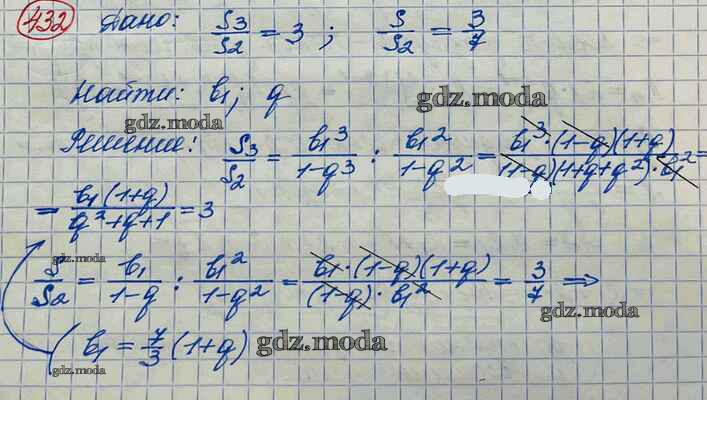 432 Дано: S₃/S₂ = 3 ; S/S₂ = 3/7
Найти: b₁; q
gdz.moda
gdz.moda
Решение: S₃/S₂ = b₁³/(1-q³) : b₁²/(1-q²) = b₁³·(1-q)(1+q)/((1-q)(1+q+q²)·b₁²) =
= b₁(1+q)/(q²+q+1) = 3
gdz.moda
S/S₂ = b₁/(1-q) : b₁²/(1-q²) = b₁·(1-q)(1+q)/((1-q)·b₁²) = 3/7 ⇒
gdz.moda
( b₁ = 7/3 (1+q)
gdz.moda
gdz.moda